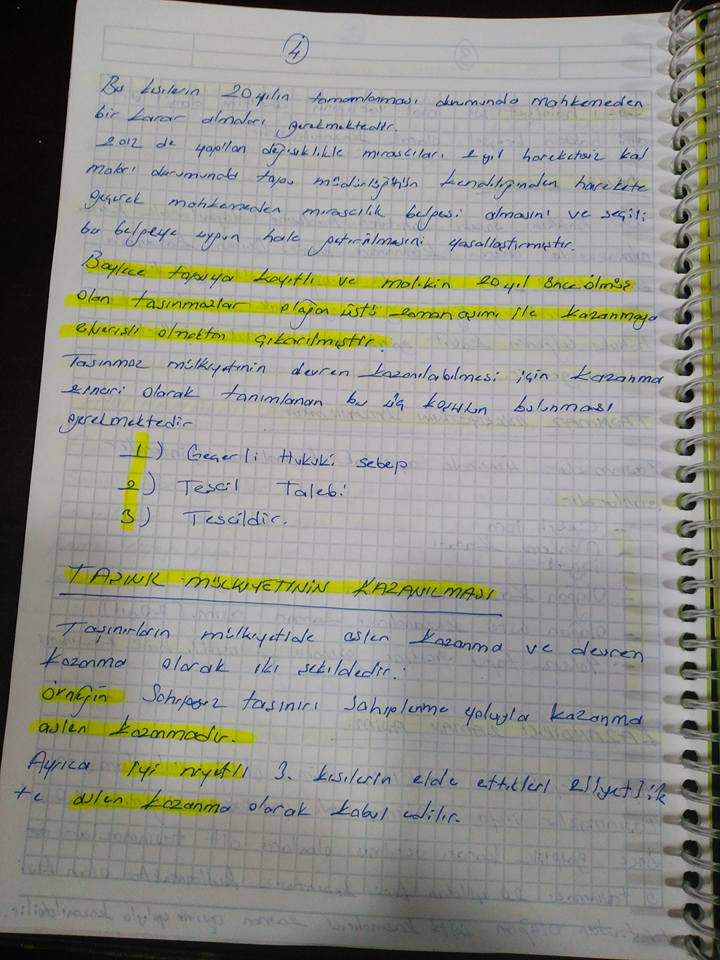 4
Bu kişilerin 20 yılın tamamlanması durumunda mahkemeden
bir karar almaları gerekmektedir.
2012 de yapılan değişiklikle mirasçıları 2 yıl hareketsiz kal
maları durumunda tapu müdürlüğünün kendiliğinden harekete
geçerek mahkemeden mirasçılık belgesi almasını ve
bu belgeye uygun hale getirilmesini yasallaştırmıştır.
Böylece tapuya kayıtlı ve malikin 20 yıl önce ölmüş
olan taşınmazlar olağan üstü zaman aşımı ile kazanmaya
elverişli olmaktan çıkarılmıştır.
Taşınmaz mülkiyetinin devren kazanılabilmesi için kazanma
zinciri olarak tanımlanan bu üç koşulun bulunması
gerekmektedir
1) Geçerli Hukuki sebep
2) Tescil Talebi
3) Tescildir.
TAŞINIR MÜLKİYETİNİN KAZANILMASI
Taşınırların mülkiyetide aslen kazanma ve devren
kazanma olarak iki şekildedir.
örneğin Sahipsiz taşınırı sahiplenme yoluyla kazanma
aslen kazanmadır.
Ayrıca iyi niyetli 3. kişilerin elde ettikleri zilyetlik
te aslen kazanma olarak kabul edilir.